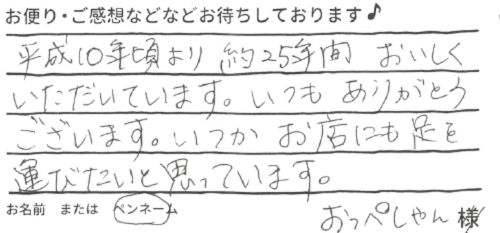 お便り・ご感想などなどお待ちしております♪
平成10年頃より 約25年間 おいしく
いただいています。いつも ありがとう
ございます。いつか お店にも 足を
運びたいと思っています。
お名前 または ペンネーム
おっぺしゃん 様